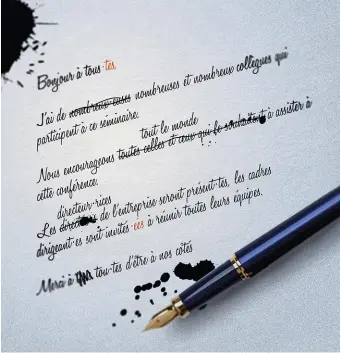 Bonjour à tous·tes
J'ai de nombreux·euses nombreuses et nombreux collègues qui
participent à ce séminaire.
tout le monde
Nous encourageons toutes celles et ceux qui le souhaitent à assister à
cette conférence.
directeur·rices
Les de l'entreprise seront présent·tes, les cadres
dirigeant·es sont invités·ées à réunir toutes leurs équipes.
Merci à tou·tes d'être à nos côtés